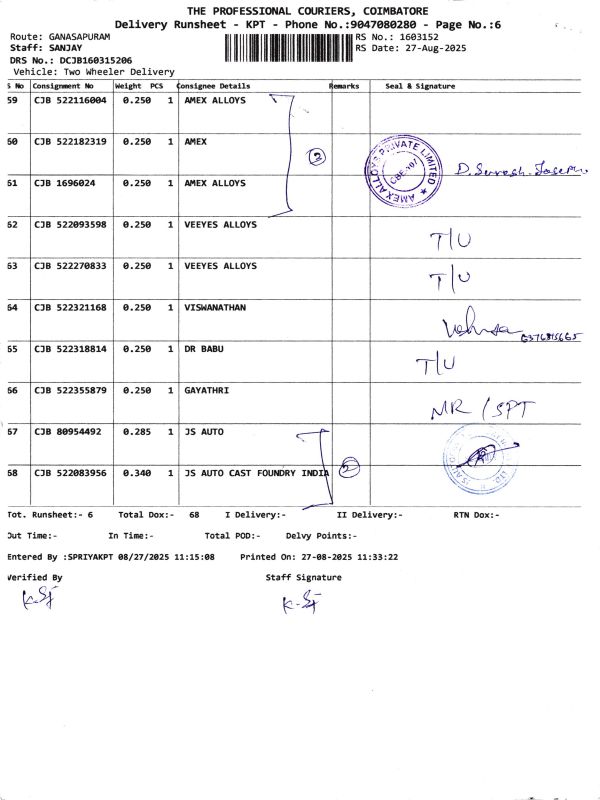 THE PROFESSIONAL COURIERS, COIMBATORE
Delivery Runsheet - KPT - Phone No.:9047080280 - Page No.:6
Route: GANASAPURAM RS No.: 1603152
Staff: SANJAY RS Date: 27-Aug-2025
DRS No.: DCJB160315206
Vehicle: Two Wheeler Delivery
S No Consignment No Weight PCS Consignee Details Remarks Seal & Signature
59 CJB 522116004 0.250 1 AMEX ALLOYS
60 CJB 522182319 0.250 1 AMEX
2
AMEX ALLOYS PRIVATE LIMITED
D. Suresh Joseph
61 CJB 1696024 0.250 1 AMEX ALLOYS
62 CJB 522093598 0.250 1 VEEYES ALLOYS T/U
63 CJB 522270833 0.250 1 VEEYES ALLOYS T/U
64 CJB 522321168 0.250 1 VISWANATHAN
65 CJB 522318814 0.250 1 DR BABU T/U
66 CJB 522355879 0.250 1 GAYATHRI MR / SPT
67 CJB 80954492 0.285 1 JS AUTO
68 CJB 522083956 0.340 1 JS AUTO CAST FOUNDRY INDIA 2
Tot. Runsheet:- 6 Total Dox:- 68 I Delivery:- II Delivery:- RTN Dox:-
Out Time:- In Time:- Total POD:- Delvy Points:-
Entered By :SPRIYAKPT 08/27/2025 11:15:08 Printed On: 27-08-2025 11:33:22
Verified By Staff Signature